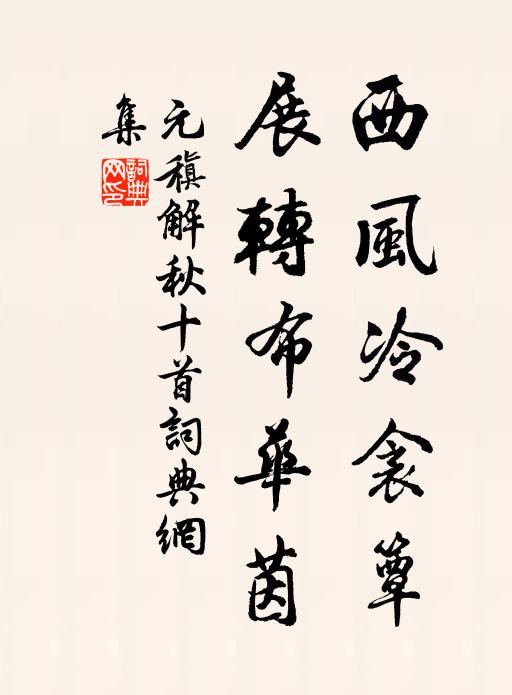 西風冷衾簟
展轉布華茵
元稹解秋十首詞典網
集
詞典
网印